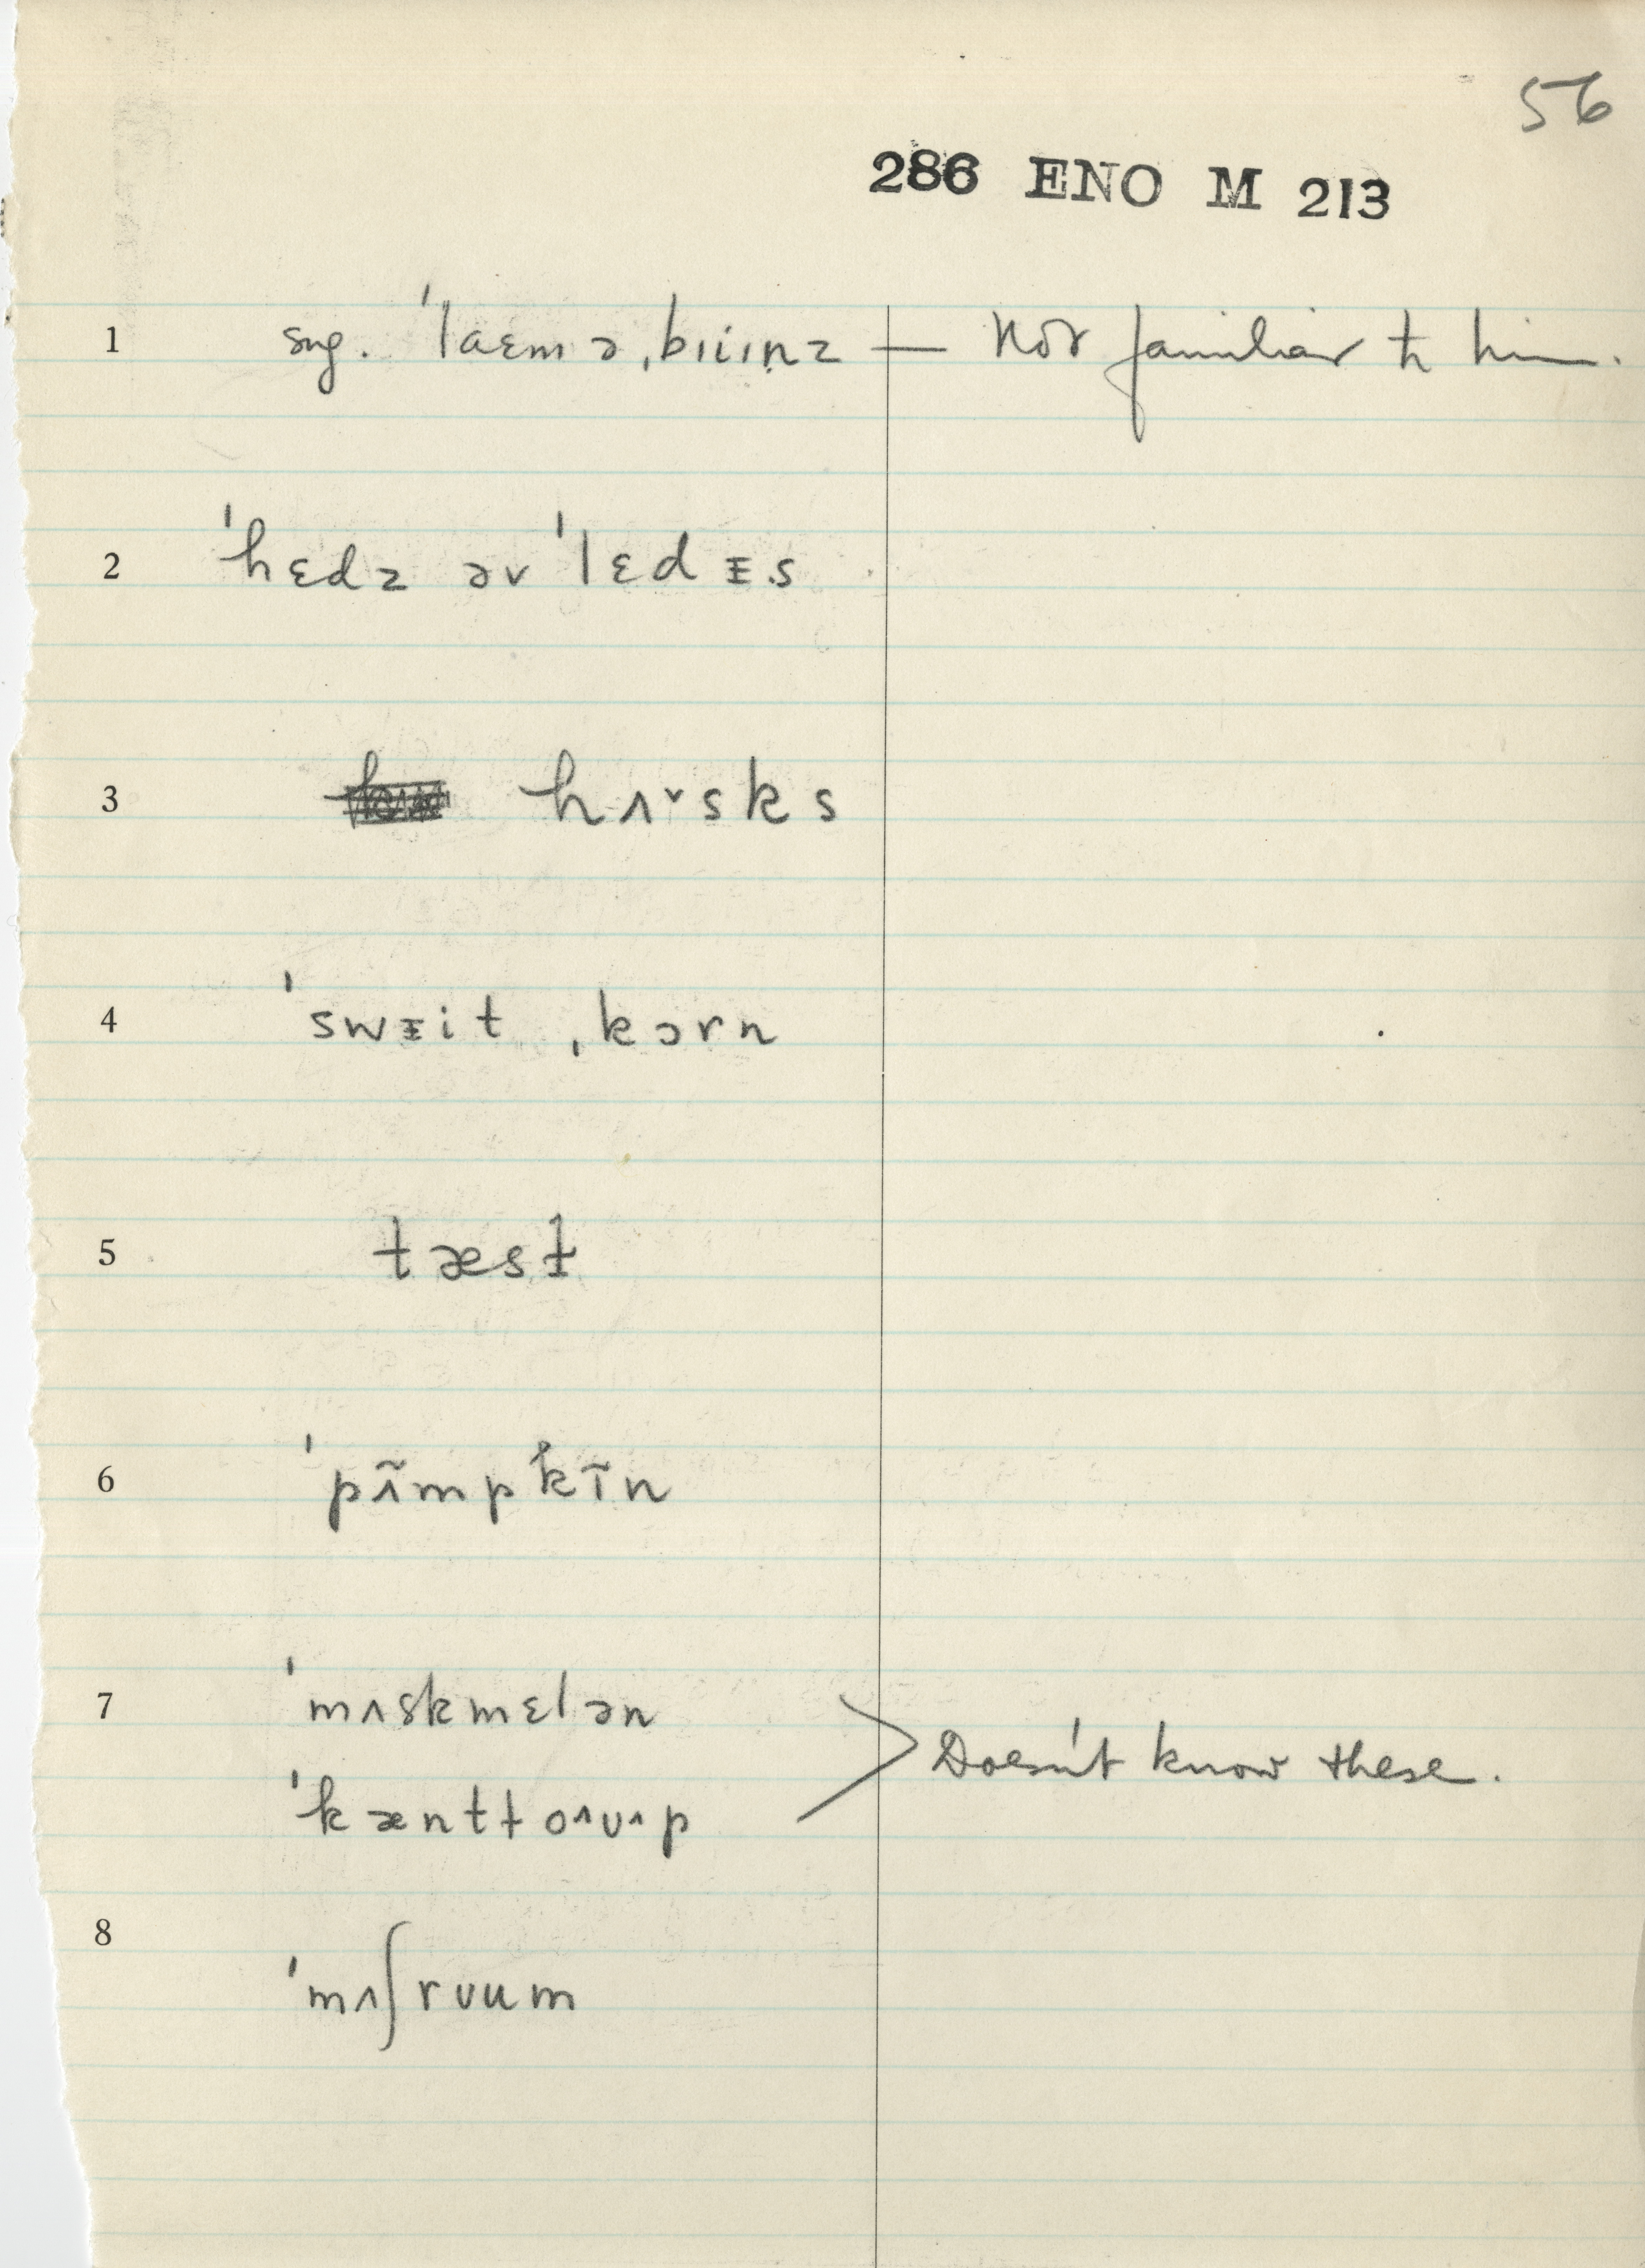 56
286 ENO M 213
1 sug. ˈlaɛmə ˌbɪiɪnz — Not familiar to him.
2 ˈhɛdz əv ˈlɛdᵻs
3 hʌ˅sks
4 ˈswᵻit ˌkɔrn
5 tæsɫ
6 ˈpʌ̃mpkɪ̃n
7 ˈmʌskmɛlən
ˈkæntɫo˄ʊ˄p > Doesn't know these.
8 ˈmʌʃrʊum